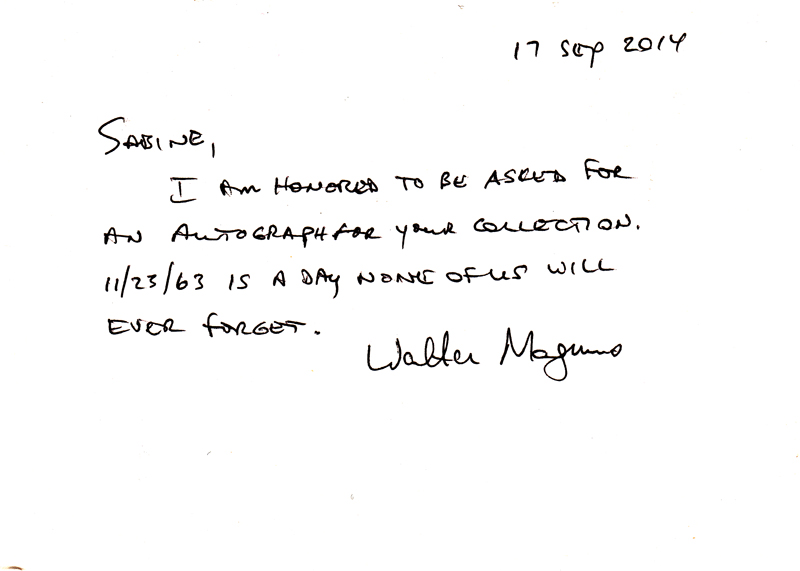 17 SEP 2014
SABINE,
I AM HONORED TO BE ASKED FOR
AN AUTOGRAPH FOR YOUR COLLECTION.
11/23/63 IS A DAY NONE OF US WILL
EVER FORGET.
Walter Magnuno